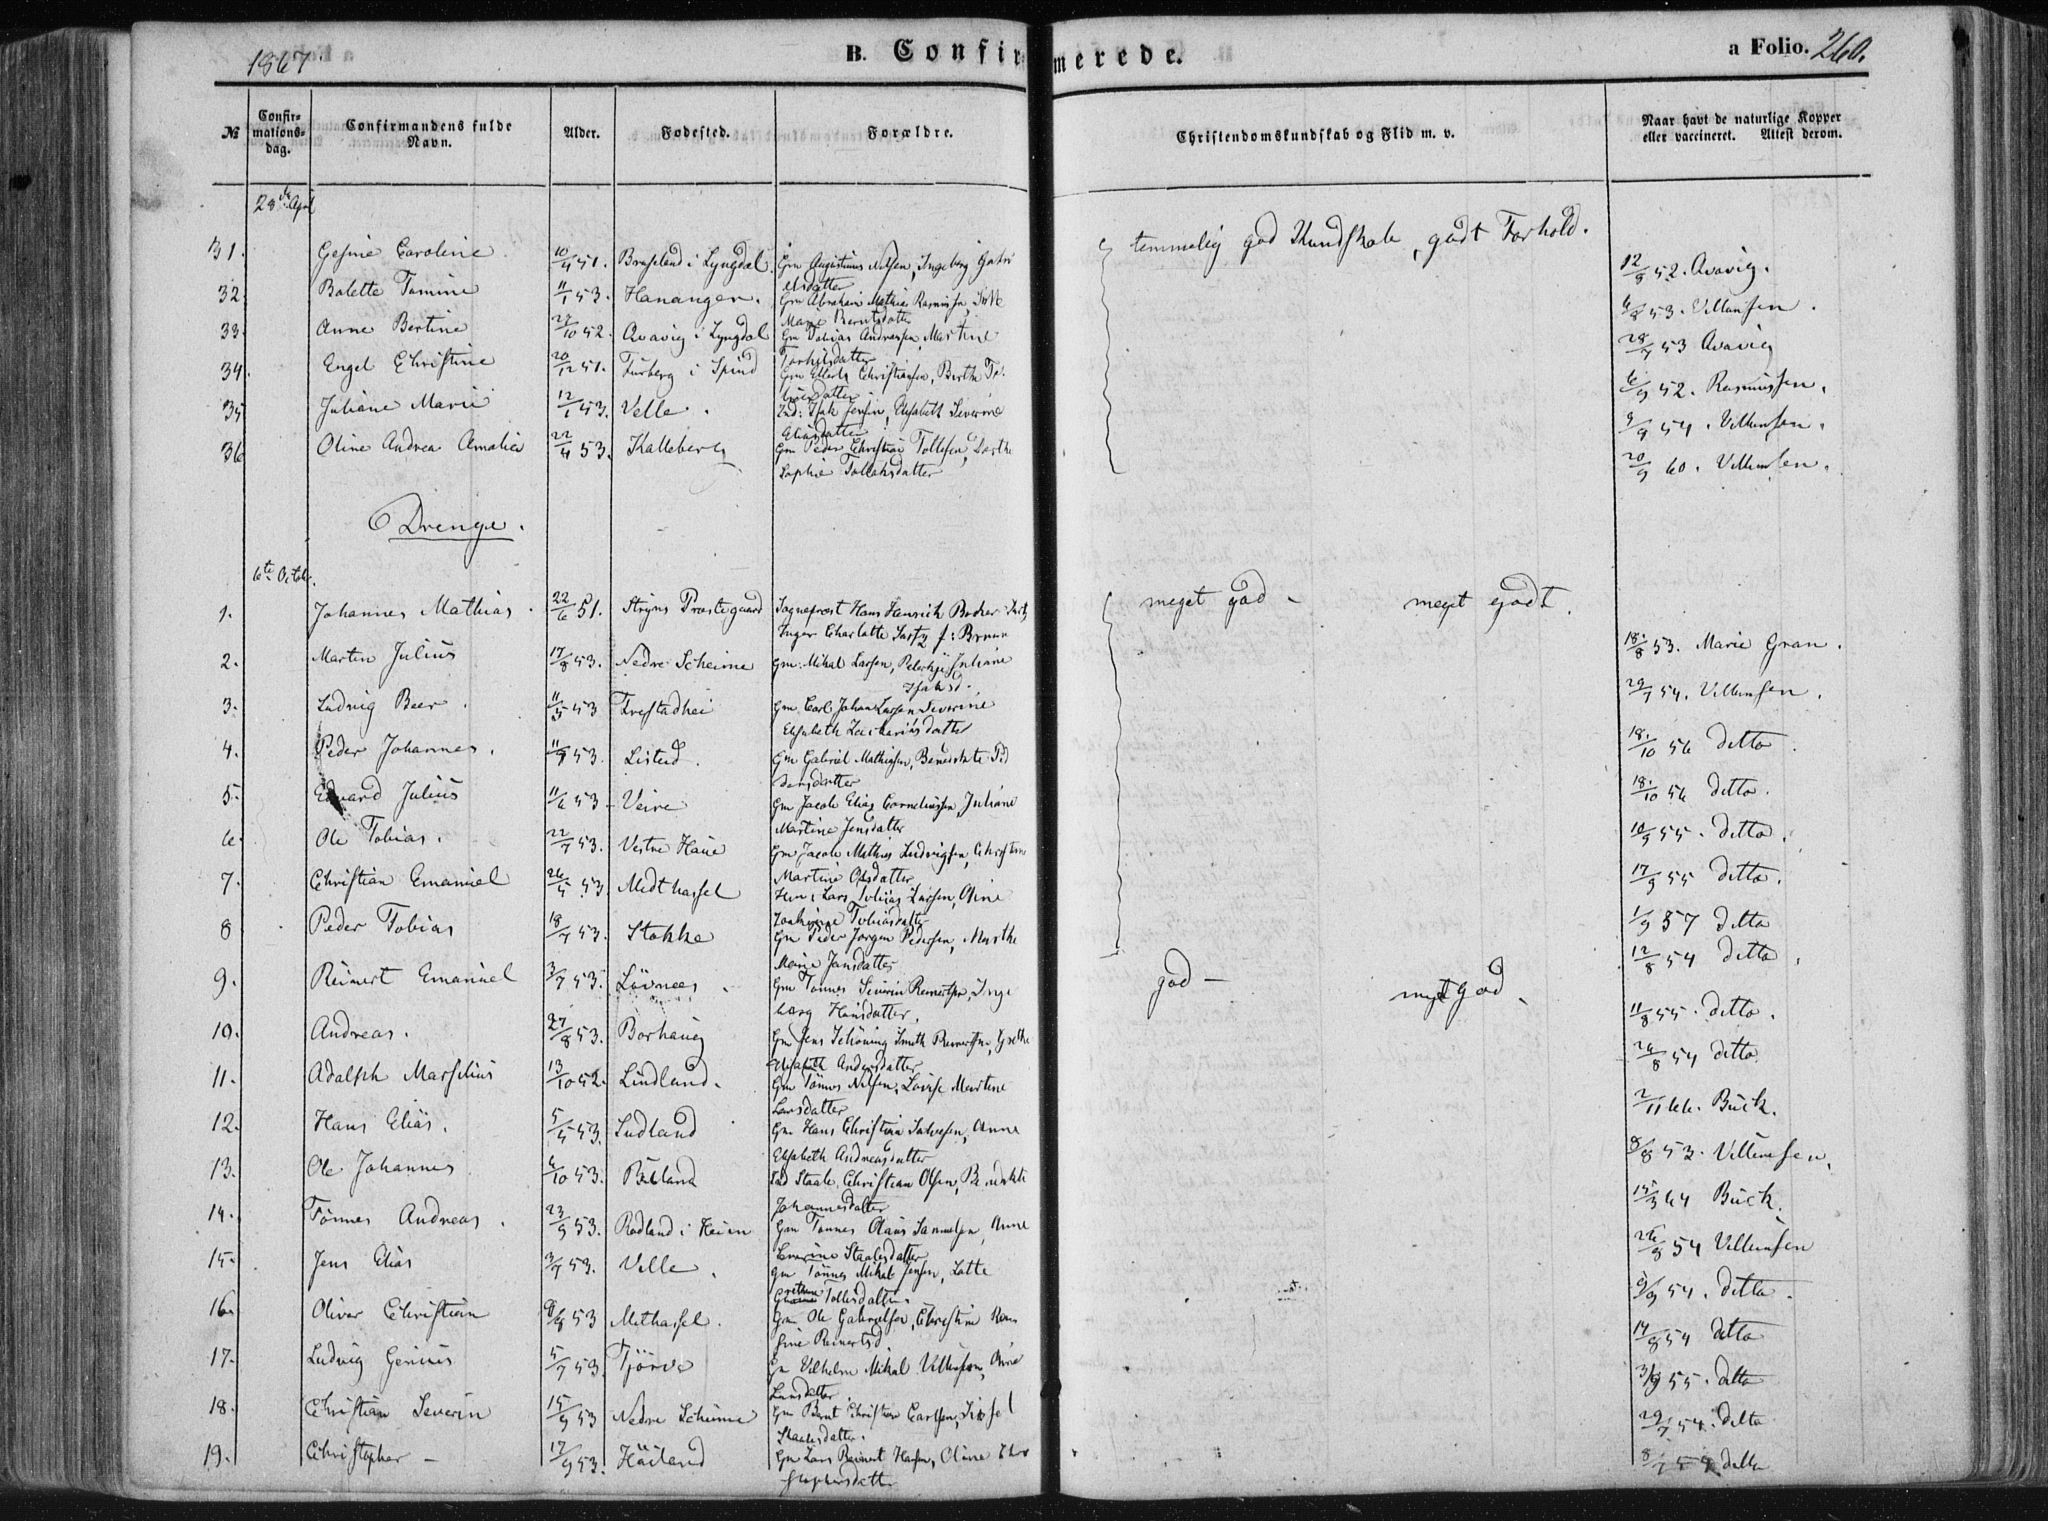 1867
B. Confirmerede.
a Folio. 260.
№ Confirmations-dag. Confirmandens fulde Navn. Alder. Fødested. Forældre. Christendomskundskab og Flid m. v. Naar havt de naturlige Kopper eller vaccineret. Attest derom.
28de April
31. Gesine Caroline 10/4 51. Braseland i Lyngdal. Gm Augustinus Nilsen, Ingeborg Gabri
elsdatter temmelig god Kundskab, godt Forhold. 12/8 52. Avavig.
32. Bolette Tomine 11/1 53. Hananger. Gm Abraham Mathias Rasmussen,
Marie Berntsdatter 6/8 53. Villumsen.
33. Anne Bertine 29/10 52. Qvavig i Lyngdal Gm Tobias Andreassen, Martine
Torkilsdatter 28/7 53 Avavig
34. Engel Christine 20/12 51. Furberg i Spind Gm Ellert Christiansen, Berthe To
biasdatter 6/9 52. Rasmussen.
35 Juliane Marie 12/1 53. Velle. Ind: Isak Jensen, Elisabeth Severine
Eliasdatter 9/9 54. Villumsen.
36 Oline Andrea Amalia 22/4 53. Kalleberg Gm Peder Christian Tollefsen, Dorthe
Sophie Tollaksdatter 20/9 60. Villumsen.
Drenge.
6te Octob.
1. Johannes Mathias. 22/6 51. Stryns Præstegaard Sognepræst Hans Henrich Bocher
Inger Charlotte f: Bruun meget god – meget godt.
2. Martin Julius 17/8 53. Nedre Scheime Gm: Mikal Larsen, Juliane
Isaksd. 18/8 53. Marie Gran.
3. Ludvig Beer. 11/5 53 Frestadhei Gm Carl Johan Larsen Severine
Elisabeth Zachariasdatter 29/7 54. Villumsen.
4. Peder Johannes. 11/9 53. Listeid. Gm Gabriel Mathiassen, Benedikte Pe
dersdatter 18/10 56 ditto.
5. Edvard Julius 11/6 53 Veire Gm Jacob Elias Corneliussen, Juliane
Martine Jensdatter 18/10 56 ditto.
6. Ole Tobias. 22/7 53. Vestre Haue Gm Jacob Mathias Ludvigsen, Christine
Martine Olsdatter 10/9 55. ditto.
7. Christian Emanuel 26/5 53. Midthassel Lars Tobias Larsen, Oline
Tobiasdatter 17/9 55 ditto.
8 Peder Tobias 18/7 53. Stokke Gm Peder Jørgen Pedersen, Marthe
Marie Jansdatter 1/9 57 ditto
12/8 54 ditto.
9. Reinert Emanuel 3/7 53. Løvnes. Gm Tønnes Severin Reinertsen, Inge
borg Hansdatter. god – myt god.
11/8 55. ditto.
10. Andreas. 27/8 53. Borhaug Gm Jens Schøning Smith Reinertsen, Grethe
Elisabeth Andersdatter 24/8 54 ditto
11. Adolph Marselius 13/10 52. Lindland. Gm Tønnes Nilsen, Lovise Martine
Larsdatter 2/11 66. Buck.
12. Hans Elias. 5/5 53. Sudland Gm Hans Christian Salvesen, Anne
Elisabeth Andreasdatter 8/8 53. Villumsen.
13. Ole Johannes 6/10 53. Bøiland Staale Christian Olsen, Benedikte
Johannesdatter 15/3 64 Buck.
14. Tønnes Andreas. 23/9 53. Rødland i Heien Gm Tønnes Olaus Samuelsen, Anne
Severine Staalesdatter 26/8 54 Villumsen
15. Jens Elias 3/7 53. Velle. Gm Tønnes Mikal Jensen, Lotte
Tollesdatter. 5/9 54. ditto.
16. Oliver Christian 9/8 53 Methassel. Gm Ole Gabrielsen, Christine Ram
sine Reinertsd 14/8 54 ditto
17. Ludvig Genius 5/7 53. Tjørve Gm Vilhelm Mikal Villumsen, Anne
Larsdatter 3/9 55. ditto
18. Christian Severin 15/9 53 Nedre Scheime Gm Bernt Christian Carlsen, Sissel
Staalesdatter. 29/7 54. ditto
19. Christopher – 17/9 53. Høiland Gm Lars Reinert Hansen, Oline Chri
stophersdatter 8/7 54 ditto